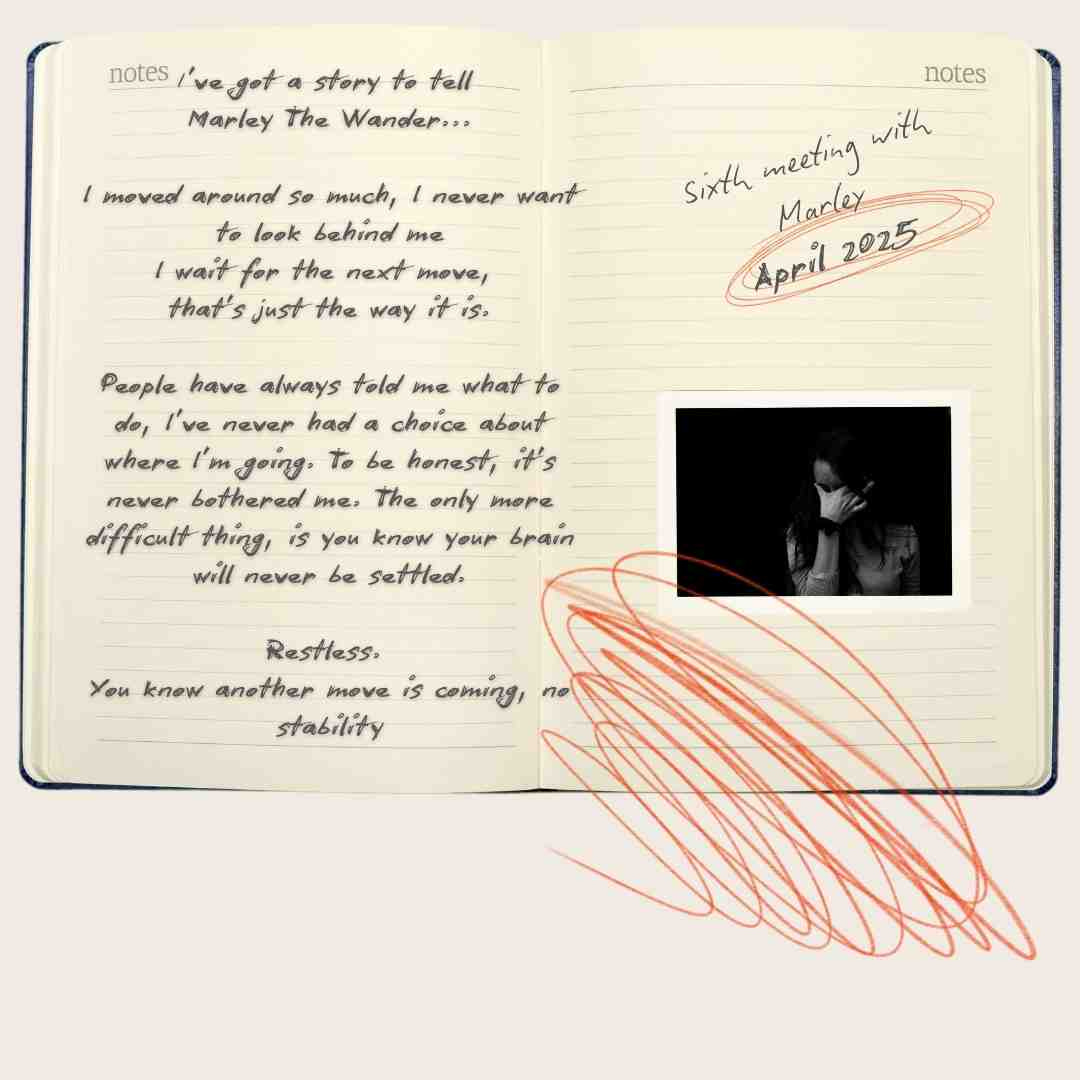 notes
I've got a story to tell
Marley The Wander...
I moved around so much, I never want
to look behind me
I wait for the next move,
that's just the way it is.
People have always told me what to
do, I've never had a choice about
where I'm going. To be honest, it's
never bothered me. The only more
difficult thing, is you know your brain
will never be settled.
Restless.
You know another move is coming, no
stability
notes
Sixth meeting with
Marley
April 2025